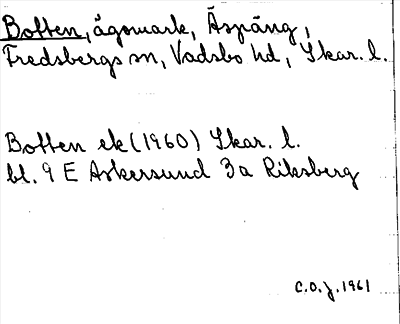 Botten, ägomark, Äspäng,
Fredsbergs sn, Vadsbo hd, Skar. l.
Botten ek (1960) Skar. l.
bl. 9 E Askersund 3a Riksberg
C.O.J. 1961